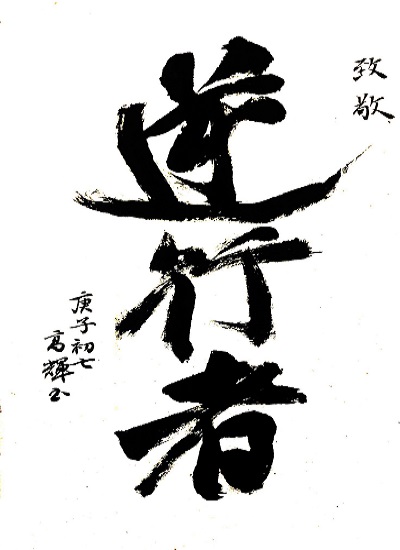 致敬
逆行者
庚子初七
高輝书